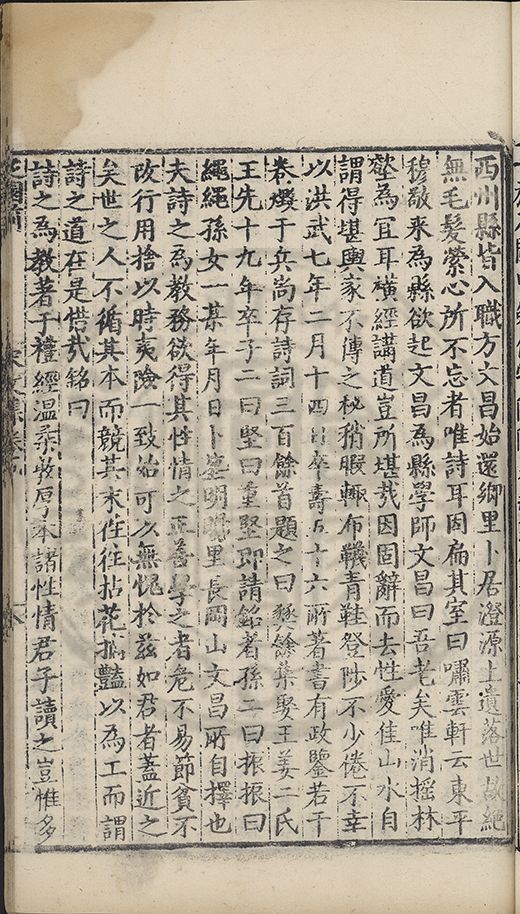 西州縣皆入職方文昌始還鄉里卜居澄源上遺落世故絶
無毛髮縈心所不忘者唯詩耳因扁其室曰嘯雲軒云東平
穆敬来為縣欲起文昌為縣學師文昌曰吾老矣唯消摇林
壑為宜耳橫經講道豈所堪㢤因固辭而去性愛佳山水自
謂得堪輿家不傳之秘稍暇輒布韈青鞋登陟不少倦不幸
以洪武七年二月十四日卒壽五十六所著書有政鑒若干
卷燬于兵尚存詩詞三百餘首題之曰餘藁娶王姜二氏
王先十九年卒子二曰堅曰重堅即請銘者孫二曰振振曰
繩繩孫女一某年月日卜塟明里長岡山文昌所自擇也
夫詩之為教務欲得其性情之正善學之者危不易節貧不
改行用捨以時夷險一致始可以無愧於兹如君者蓋近之
矣世之人不循其本而競其末往往拈花摘豔以為工而謂
詩之道在是惜㢤銘曰
詩之為教著于禮經温柔敦厚本諸性情君子讀之豈惟多